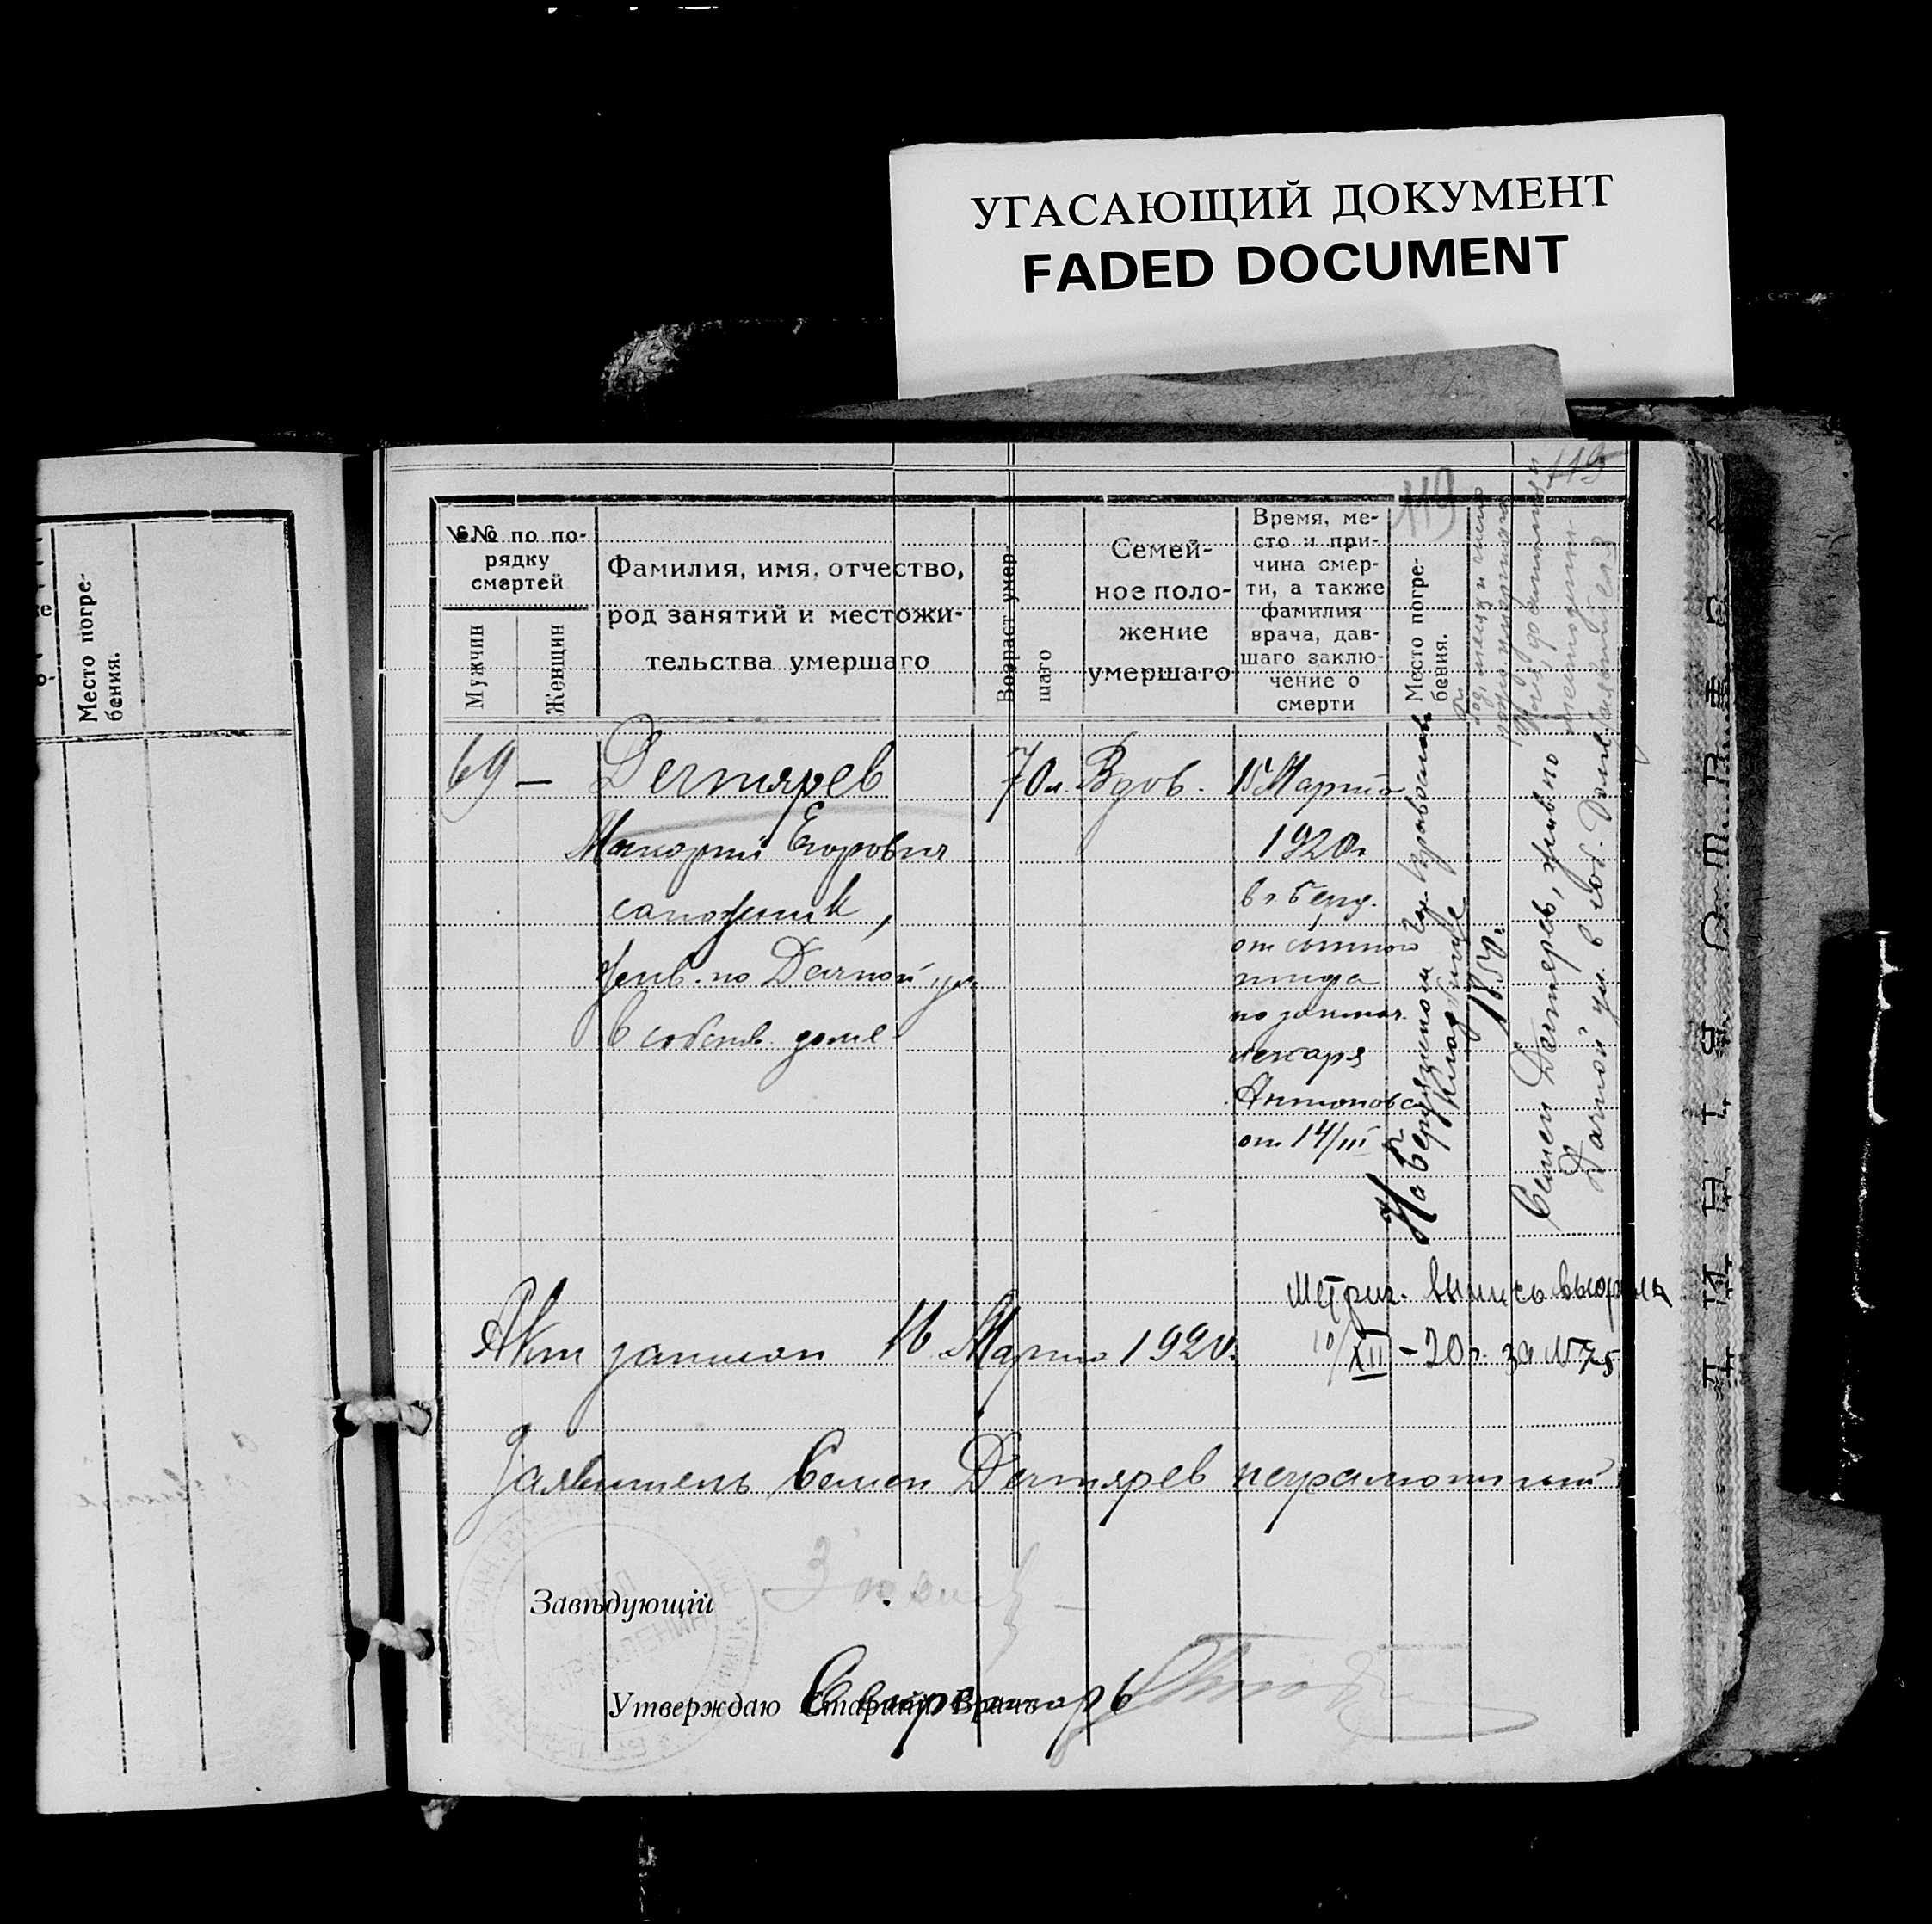 УГАСАЮЩИЙ ДОКУМЕНТ
FADED DOCUMENT
Место погре-
бения.
119
119
№№ по по-
рядку
смертей
Мужчин
Женщин
Фамилия, имя, отчество,
род занятий и местожи-
тельства умершаго
Возраст умер
шаго
Семей-
ное поло-
жение
умершаго
Время, ме-
сто и при-
чина смер-
ти, а также
фамилия
врача, дав-
шаго заклю-
чение о
смерти
Место погре-
бения.
Год, месяц и число
69 —
Дегтярев
Егорович
сапожник,
жив. по Дачной ул.
в собств. доме
70 л.
Вдов.
15 Марта
1920г
в г. Берд.
от сыпного
тифа
по заключ.
лекаря
Антонова
от 14/III
На Бердянском гор. православн.
кладбище
1850г.
Семен Дегтярев, жив. по
Дачной ул. в соб. доме
Метрич. выпись выдана
10/XII - 20 г. за № 75
Акт записан 16 Марта 1920г.
Заявитель Семен Дегтярев неграмотный
Завѣдующій
Утверждаю Старшій Врачъ
Секретарь